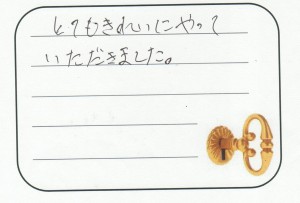 とてもきれいにやって
いただきました。